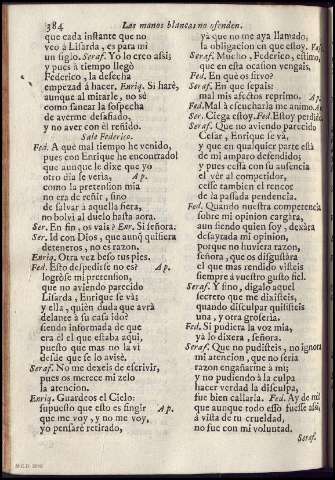 384
Las manos blancas no ofenden.
que cada instante que no
veo à Lisarda, es para mi
un siglo. Seraf. Yo lo creo assi:
y pues à tiempo llegò
Federico, la desecha
empezad à hacer. Enriq. Si harè,
aunque al mirarle, no sè
como sanear la sospecha
de averme desafiado,
y no aver con èl reñido.
Sale Federico.
Fed. A què mal tiempo he venido,
pues con Enrique he encontrado!
que aunque le dixe que yo
otro dia se verìa, Ap.
como la pretension mia
no era de reñir, sino
de salvar à aquella fiera,
no bolvì al duelo hasta aora.
Ser. En fin, os vais? Enr. Si señora.
Ser. Id con Dios, que aunq̃ quisiera
deteneros, no es razon.
Enriq. Otra vez beso tus pies.
Fed. Esto despedirse no es? Ap.
logròse mi pretension,
que no aviendo parecido
Lisarda, Enrique se và;
y ella, quien duda que avrà
delante à su casa ido?
siendo informada de que
era èl el que estaba aqui,
puesto que mas no la vì
desde que se lo avisè.
Seraf. No me dexeis de escrivir,
pues os merece mi zelo
la atencion.
Enriq. Guardeos el Cielo:
supuesto que esto es fingir Ap.
que me voy, y no me voy,
yo pensarè retirado,
ya que no me aya llamado,
la obligacion en que estoy.
Seraf. Mucho, Federico, estimo,
que en esta ocasion vengais.
Fed. En què os sirvo?
Seraf. En que sepais:
mal mis afectos reprimo.
Fed. Mal à escucharla me animo.
Ser. Ciega estoy. Fed. Estoy perdido
Seraf. Que no aviendo parecido
Cesar, Enrique se và,
y que en qualquier parte està
de mi amparo defendido;
y pues cessa con su ausencia
el vèr al competidor,
cesse tambien el rencor
de la passada pendencia.
Fed. Quando nuestra competencia
sobre mi opinion cargàra,
aun siendo quien soy, dexàra
desayrada mi opinion,
porque no huviera razon,
señora, que os disgustàra
el que mas rendido visteis
siempre à vuestro gusto fiel.
Seraf. Y fino, digalo aquel
secreto que me dixisteis,
quando disculpar quisisteis
una, y otra groseria.
Fed. Si pudiera la voz mia,
yà lo dixera, señora.
Seraf. Que no pudisteis, no ignora
mi atencion, que no serìa
razon engañarme à mi;
y no pudiendo à la culpa
hacer verdad la disculpa,
fue bien callarla. Fed. Ay de mi!
que aunque todo esso fuesse assi,
à vista de tu crueldad,
no fue con mi voluntad.
Seraf.